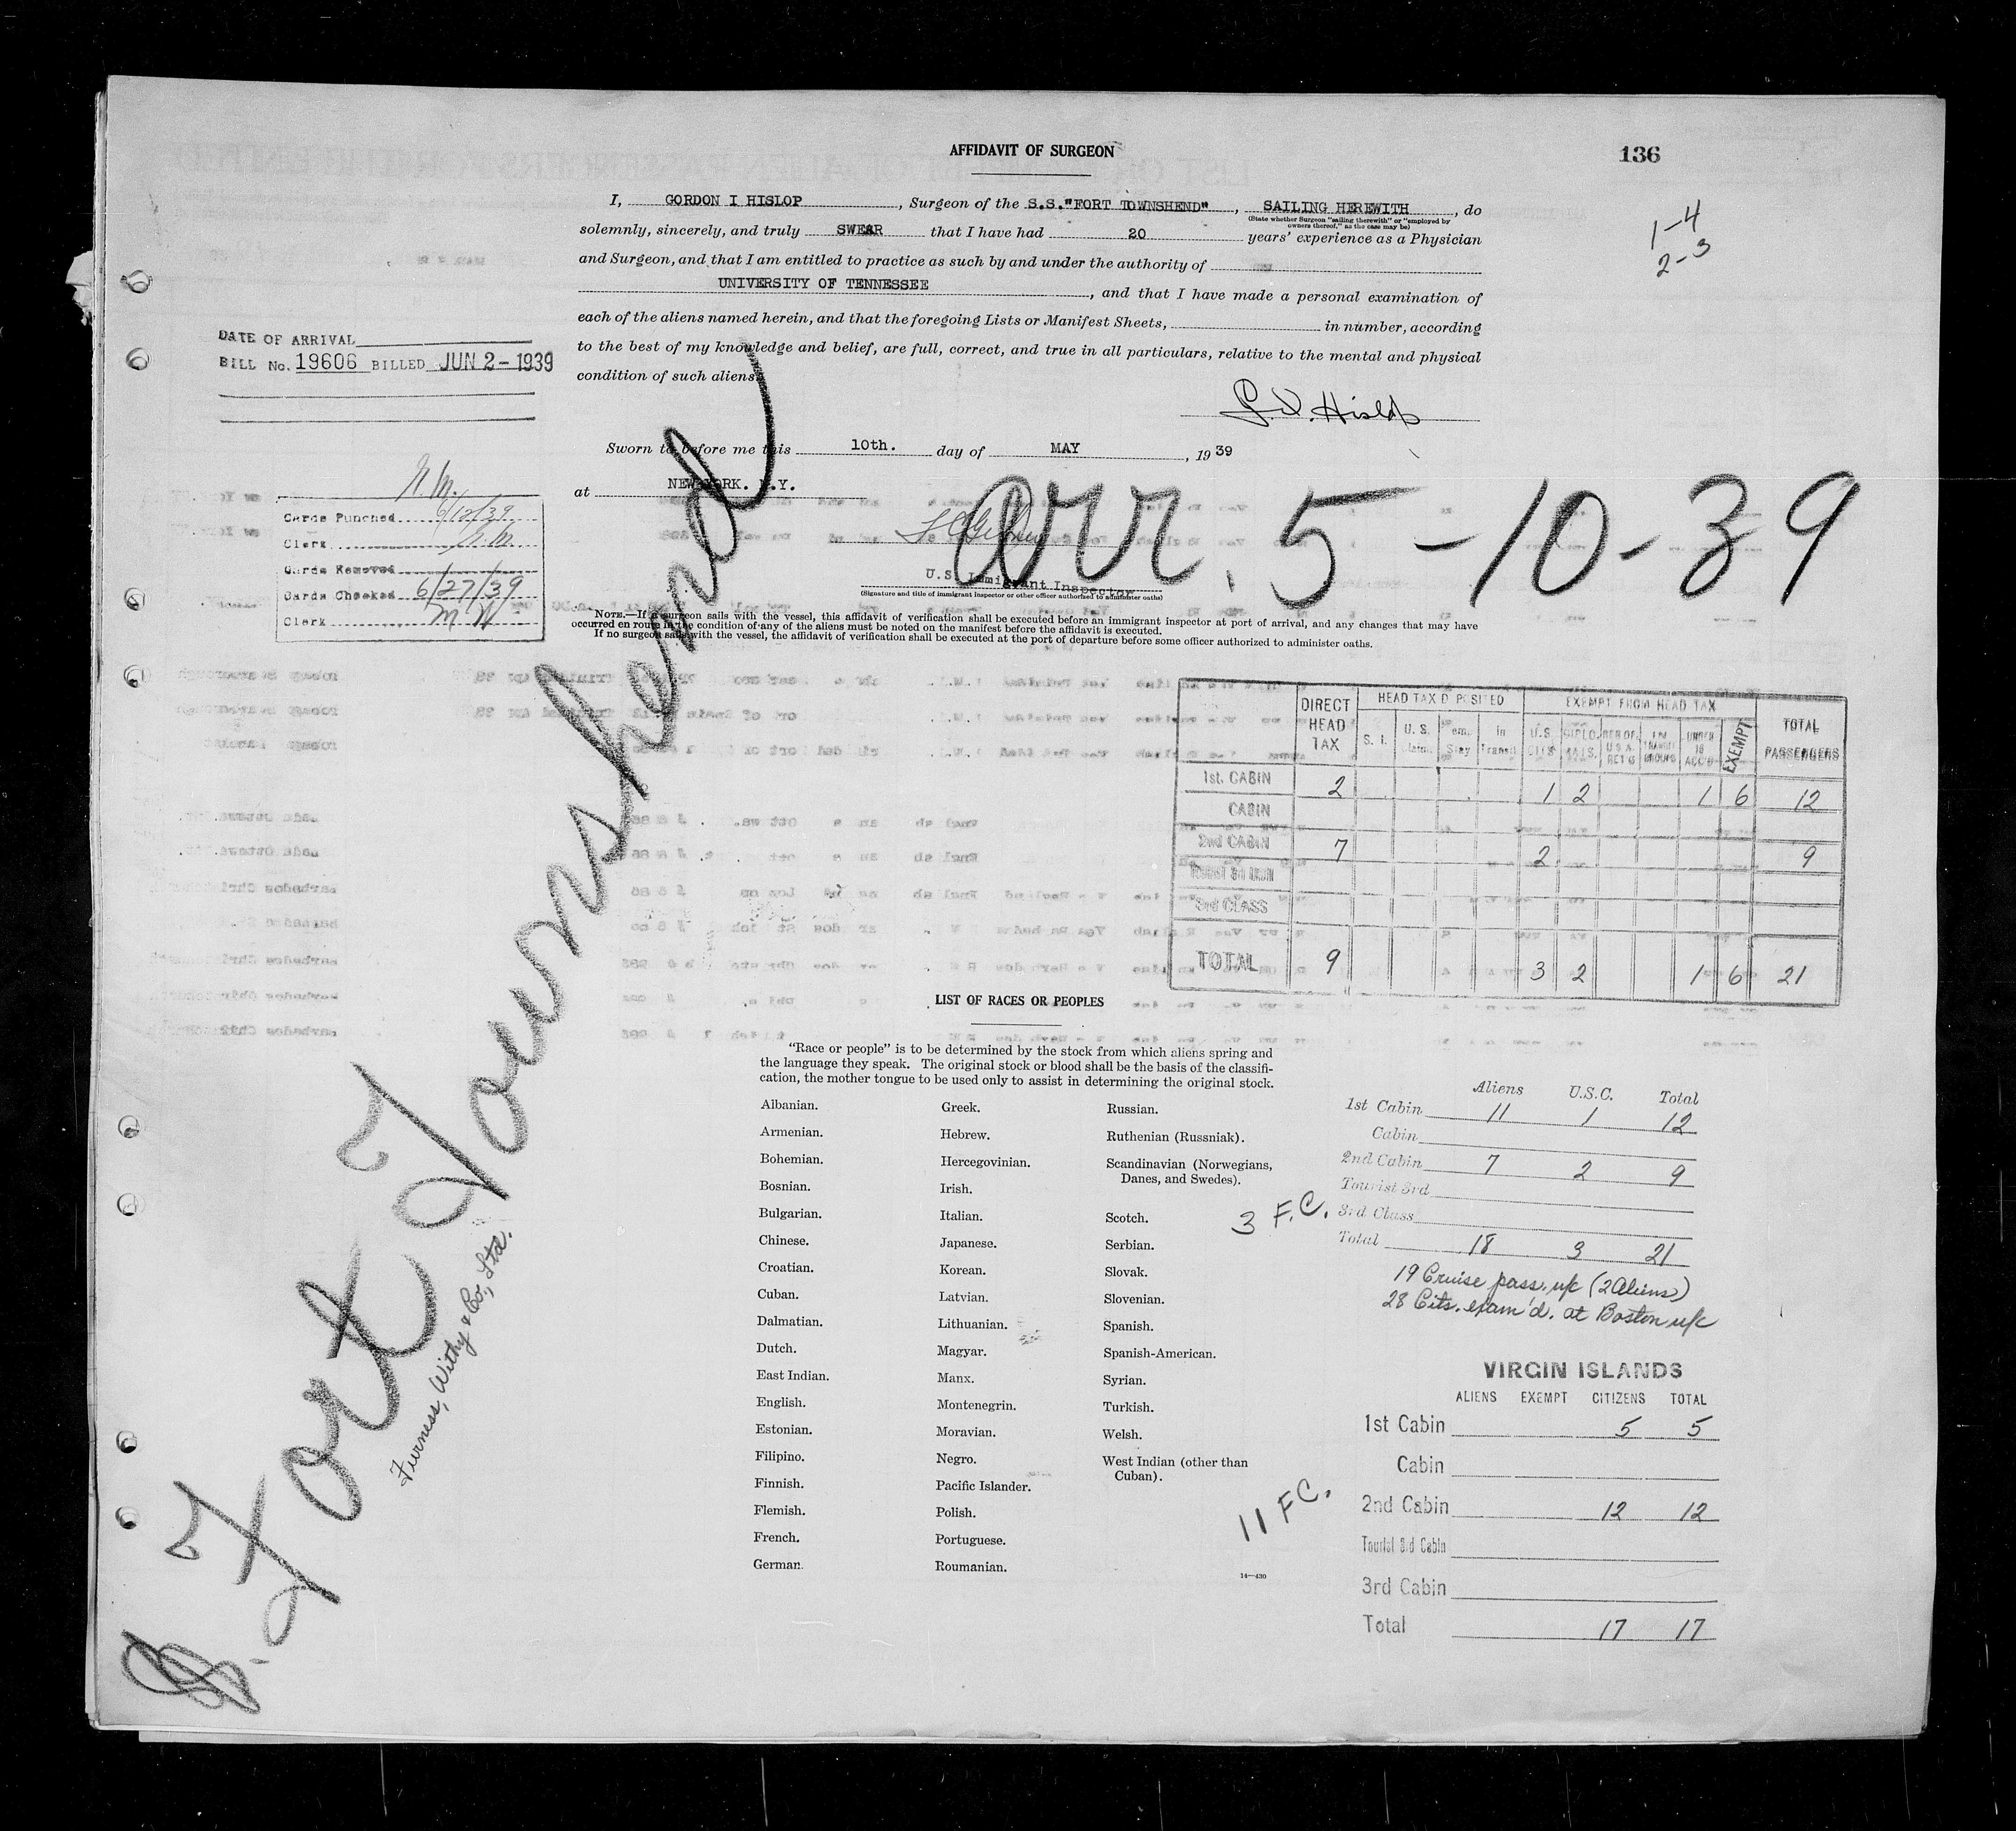 AFFIDAVIT OF SURGEON
136
1-4
2-3
I, GORDON I HISLOP, Surgeon of the S.S."FORT TOWNSHEND", SAILING HEREWITH, do
(State whether Surgeon "sailing therewith" or "employed by owners thereof," as the case may be)
solemnly, sincerely, and truly SWEAR that I have had 20 years' experience as a Physician
and Surgeon, and that I am entitled to practice as such by and under the authority of
UNIVERSITY OF TENNESSEE, and that I have made a personal examination of
each of the aliens named herein, and that the foregoing Lists or Manifest Sheets, in number, according
to the best of my knowledge and belief, are full, correct, and true in all particulars, relative to the mental and physical
condition of such aliens.
G. I. Hislop
Sworn to before me this 10th. day of MAY, 1939
at NEW YORK. N.Y.
arr. 5-10-39
U.S. Immigrant Inspector
(Signature and title of immigrant inspector or other officer authorized to administer oaths)
NOTE.—If a surgeon sails with the vessel, this affidavit of verification shall be executed before an immigrant inspector at port of arrival, and any changes that may have
occurred en route in the condition of any of the aliens must be noted on the manifest before the affidavit is executed.
If no surgeon sails with the vessel, the affidavit of verification shall be executed at the port of departure before some officer authorized to administer oaths.
DATE OF ARRIVAL
BILL No. 19606 BILLED JUN 2 - 1939
Cards Punched 6/12/39
Clerk
Cards Removed
Cards Checked 6/27/39
Clerk
Fort Townshend
Furness, Withy & Co., Ltd.
DIRECT HEAD TAX
HEAD TAX DEPOSITED
EXEMPT FROM HEAD TAX
TOTAL PASSENGERS
S. I. U.S. In Transit U.S. CITS. DIPLOMATS. UNDER 16 ACC'D EXEMPT
1st. CABIN 2 1 2 1 6 12
CABIN
2nd CABIN 7 2 9
TOURIST 3rd CABIN
3rd CLASS
TOTAL 9 3 2 1 6 21
LIST OF RACES OR PEOPLES
"Race or people" is to be determined by the stock from which aliens spring and
the language they speak. The original stock or blood shall be the basis of the classifi-
cation, the mother tongue to be used only to assist in determining the original stock.
Albanian.
Armenian.
Bohemian.
Bosnian.
Bulgarian.
Chinese.
Croatian.
Cuban.
Dalmatian.
Dutch.
East Indian.
English.
Estonian.
Filipino.
Finnish.
Flemish.
French.
German.
Greek.
Hebrew.
Hercegovinian.
Irish.
Italian.
Japanese.
Korean.
Latvian.
Lithuanian.
Magyar.
Manx.
Montenegrin.
Moravian.
Negro.
Pacific Islander.
Polish.
Portuguese.
Roumanian.
Russian.
Ruthenian (Russniak).
Scandinavian (Norwegians,
Danes, and Swedes).
Scotch.
Serbian.
Slovak.
Slovenian.
Spanish.
Spanish-American.
Syrian.
Turkish.
Welsh.
West Indian (other than
Cuban).
14—430
Aliens U.S.C. Total
1st Cabin 11 1 12
Cabin
2nd Cabin 7 2 9
Tourist 3rd
3rd Class
Total 18 3 21
3 F.C.
19 Cruise pass. u/c (2 Aliens)
28 Cits. exam'd. at Boston u/c
VIRGIN ISLANDS
ALIENS EXEMPT CITIZENS TOTAL
1st Cabin 5 5
Cabin
2nd Cabin 12 12
Tourist 3rd Cabin
3rd Cabin
Total 17 17
11 F.C.